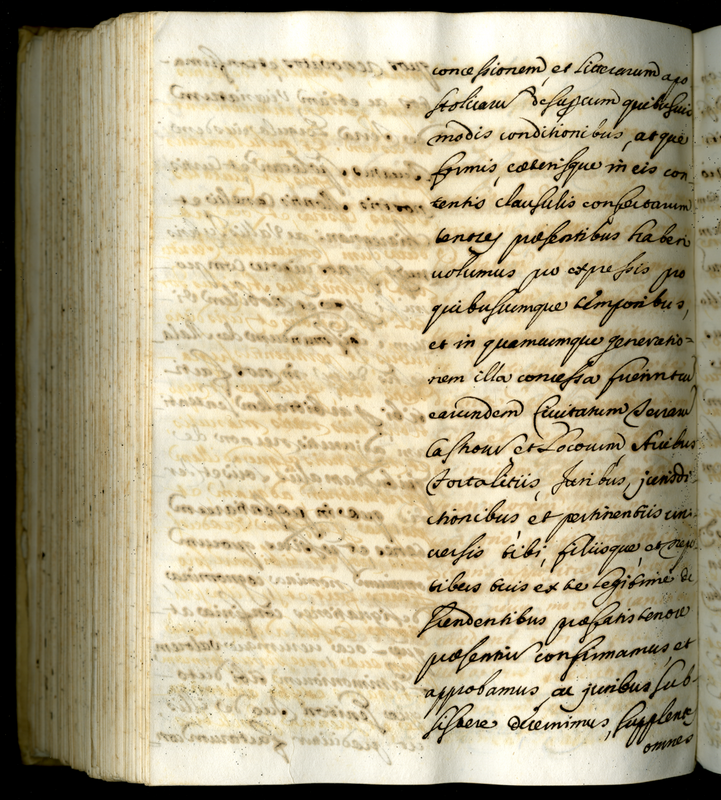 concessionem, et Litterarum apo
stolicarũ desuper cum quibusuis
modis conditionibus, atque
formis, cæterisque in eis con-
tentis clausulis confectarum
tenores præsentibus haberi
uolumus pro expressis pro
quibuscumque temporibus,
et in quamcumque generatio=
nem illa concessa fuerint cu
earundem Ciuitatum Terrarũ
Castrorũ et Locorum, Arcibus
Fortalitiis, Juribus, jurisdi-
ctionibus et pertinentiis uni
uersis tibi, filiisque, et nepo
tibus tuis ex te legitimè de
scendentibus præfatis tenore
præsentiũ confirmamus, et
approbamus, ac juribus sub-
sistere decernimus, supplentes
omnes